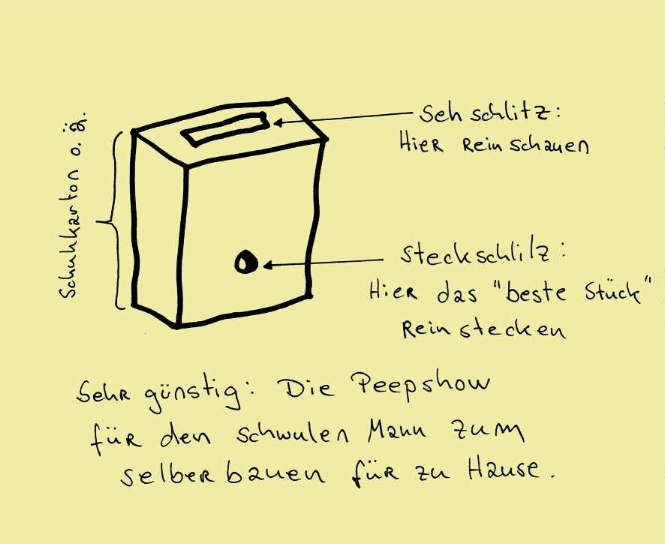 Sehschlitz:
Hier Rein schauen
Schuhkarton o.ä.
Steckschlilz:
Hier das "beste Stück"
Rein stecken
Sehr günstig: Die Peepshow
für den schwulen Mann zum
selber bauen für zu Hause.